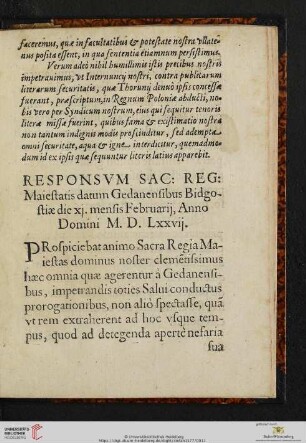 faceremus, quæ in facultatibus & potestate nostra vllate-
nus posita essent, in qua sententia etiamnum persistimus.
Verum adeò nihil humillimis istis precibus nostris
impetrauimus, vt Internuncij nostri, contra publicarum
literarum securitatis, quæ Thorunij denuò ipsis concessæ
fuerant, præscriptum, in Regnum Poloniæ abducti, no-
bis vero per Syndicum nostrum, eius quí sequitur tenoris
literæ missæ fuerint, quibus fama & existimatio nostra
non tantum indignis modis proscinditur, sed ademptâ
omni securitate, aqua & igne interdicitur, quemadmo-
dum id ex ipsis quæ sequuntur literis latius apparebit.
RESPONSVM SAC: REG:
Maiestatis datum Gedanensibus Bidgo-
stiæ die xj. mensis Februarij, Anno
Domini M. D. Lxxvij.
PRospiciebat animo Sacra Regia Ma-
iestas dominus noster clementissimus
hæc omnia quæ agerentur à Gedanensi-
bus, impetrandis toties Salui conductus
prorogationibus, non aliò spectasse, quã
vt rem extraherent ad hoc vsque tem-
pus, quod ad detegenda apertè nefaria
sua
UNIVERSITÄTS-
BIBLIOTHEK
HEIDELBERG
© Universitätsbibliothek Heidelberg